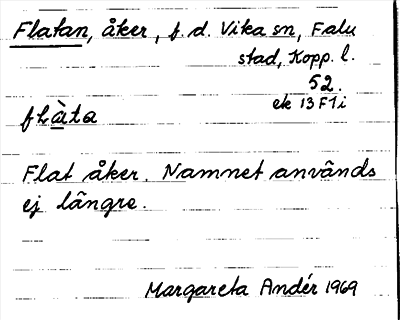 Flatan, åker, f.d. Vika sn, Falu
stad, Kopp. l.
52.
ek 13 F1i
flàta
Flat åker. Namnet används
ej längre.
Margareta Andér 1969